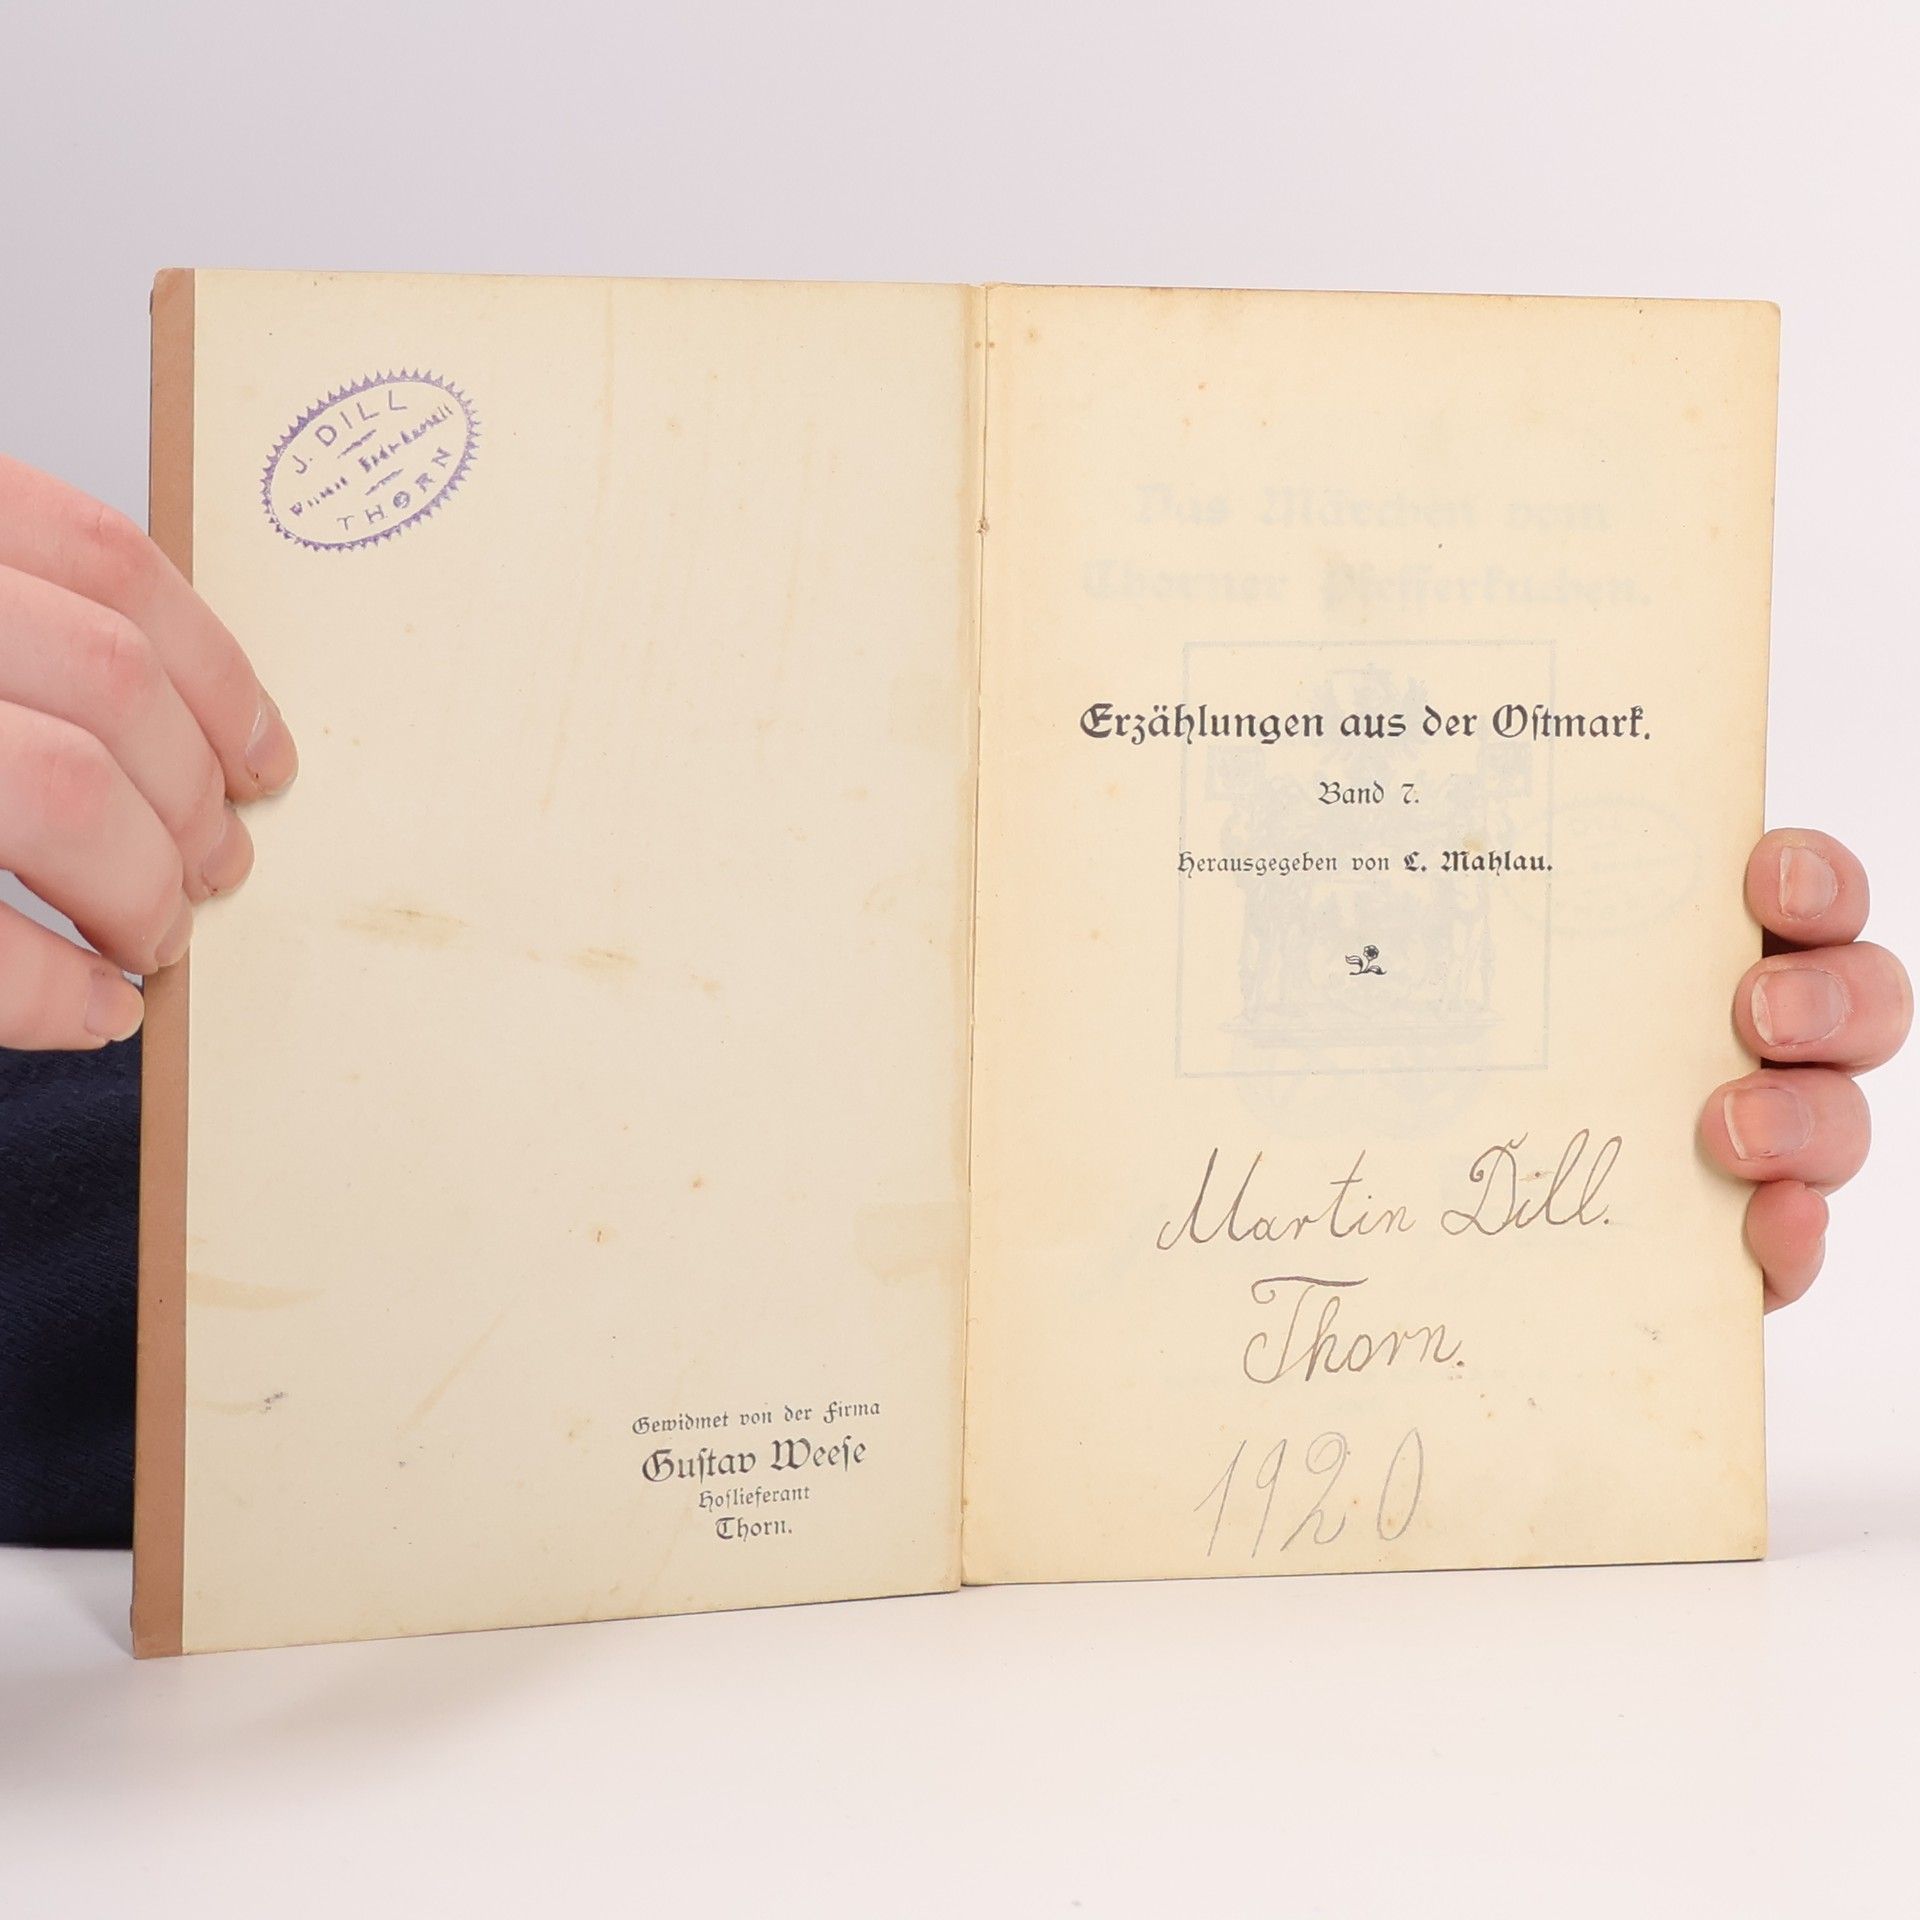 J. DILL
THORN
Gewidmet von der Firma
Gustav Weese
Hoflieferant
Thorn.
Das Märchen vom
Thorner Pfefferkuchen.
Erzählungen aus der Ostmark.
Band 7.
Herausgegeben von C. Mahlau.
Martin Dill.
Thorn.
1920